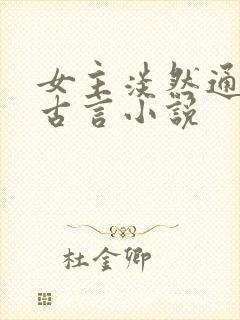 女主淡然通
古言小说
杜金卿